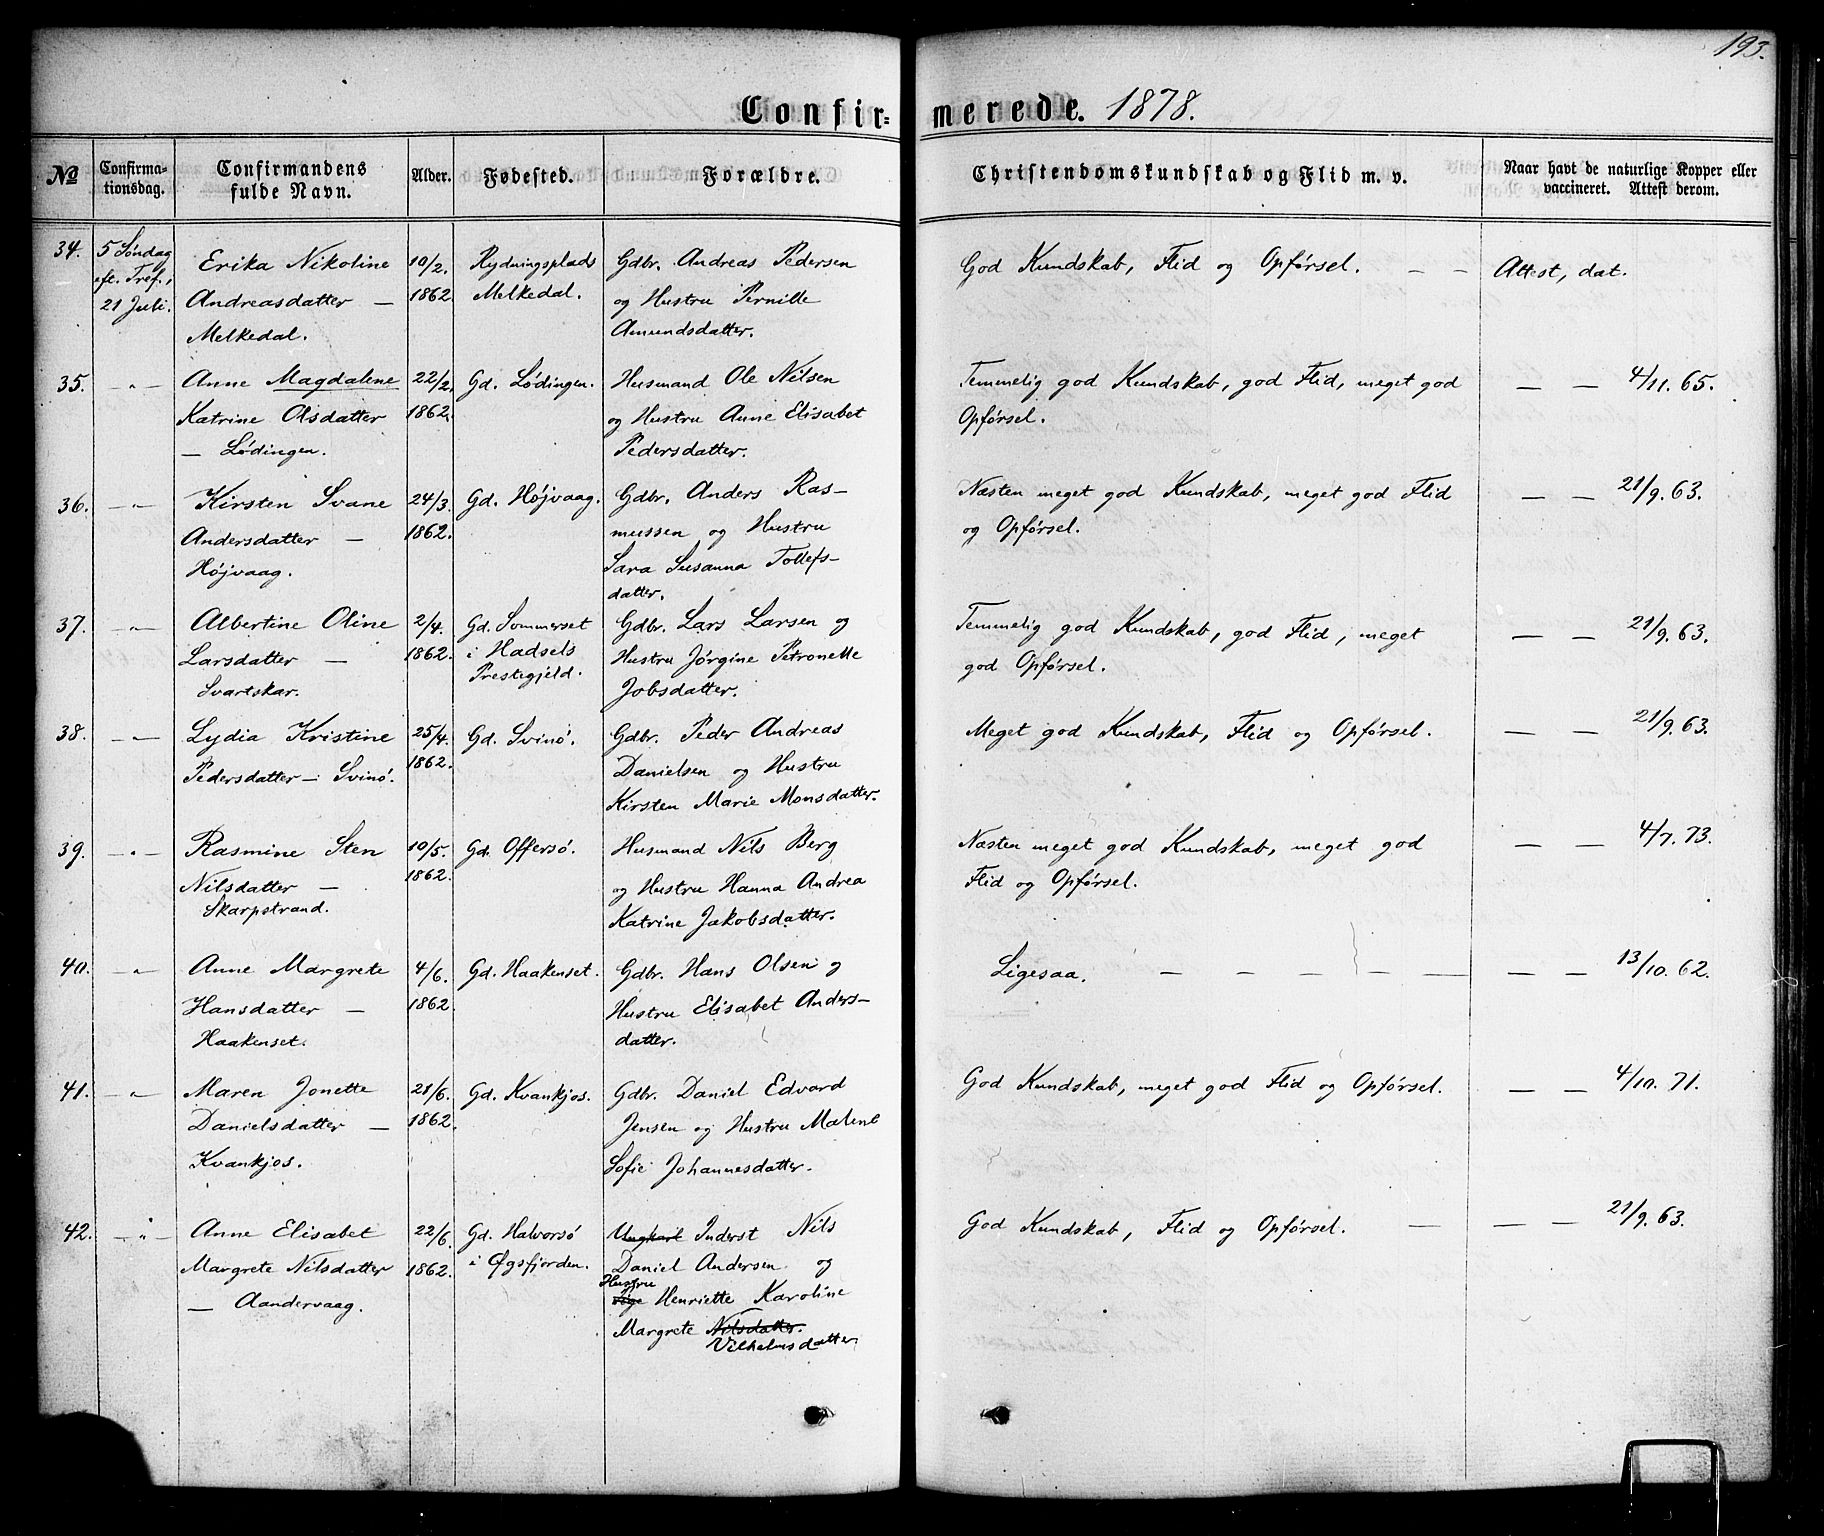 193.
Confir- merede. 1878.
No Confirmationsdag. Confirmandens fulde Navn. Alder. Fødested. Forældre. Christendomskundskab og Flid m. v. Naar havt de naturlige Kopper eller vaccineret. Attest derom.
34. 5 Søndag Erika Nikoline 10/2. Rydningsplads Gdbr. Andreas Pedersen God Kundskab, Flid og Opførsel. — — Attest, dat.
eft. Tref., Andreasdatter — 1862. Melkedal. og Hustru Pernille
21 Juli. Melkedal. Amundsdatter.
35. — " — Anne Magdalene 22/2. Gd. Lødingen. Husmand Ole Nilsen Temmelig god Kundskab, god Flid, meget god — — 4/11. 65.
Katrine Olsdatter 1862. og Hustru Anne Elisabet Opførsel.
— Lødingen. Pedersdatter.
36. — " — Kirsten Svane 24/3. Gd. Højvaag. Gdbr. Anders Ras- Næsten meget god Kundskab, meget god Flid — — 21/9. 63.
Andersdatter — 1862. mussen og Hustru og Opførsel.
Højvaag. Sara Susanna Tollefs-
datter.
37. — " — Albertine Oline 2/4. Gd. Sommerset Gdbr. Lars Larsen og Temmelig god Kundskab, god Flid, meget — — 21/9. 63.
Larsdatter — 1862. i Hadsels Hustru Jørgine Petronelle god Opførsel.
Svartskar. Prestegjeld. Jobsdatter.
38. — " — Lydia Kristine 25/4. Gd. Svinø. Gdbr. Peder Andreas Meget god Kundskab, Flid og Opførsel. — — 21/9. 63.
Pedersdatter — Svinø. 1862. Danielsen og Hustru
Kirsten Marie Monsdatter.
39. — " — Rasmine Sten 10/5. Gd. Offersø. Husmand Nils Berg Næsten meget god Kundskab, meget god — — 4/7. 73.
Nilsdatter — 1862. og Hustru Hanna Andrea Flid og Opførsel.
Skarpstrand. Katrine Jakobsdatter.
40. — " — Anne Margrete 4/6. Gd. Haakenset. Gdbr. Hans Olsen og Ligesaa. — — — — — — — 13/10. 62.
Hansdatter — 1862. Hustru Elisabet Anders-
Haakenset. datter.
41. — " — Maren Jonette 21/6. Gd. Kvankjos. Gdbr. Daniel Edvard God Kundskab, meget god Flid og Opførsel. — — 4/10. 71.
Danielsdatter — 1862. Jensen og Hustru Malene
Kvankjos. Sofie Johannesdatter.
42. — " — Anne Elisabet 22/6. Gd. Halvorsø Ungkarl Inderst Nils God Kundskab, Flid og Opførsel. — — — 21/9. 63.
Margrete Nilsdatter 1862. i Øgsfjorden. Daniel Andersen og
— Aandervaag. Hustru Henriette Karoline
Margrete Nilsdatter.
Vilhelmsdatter